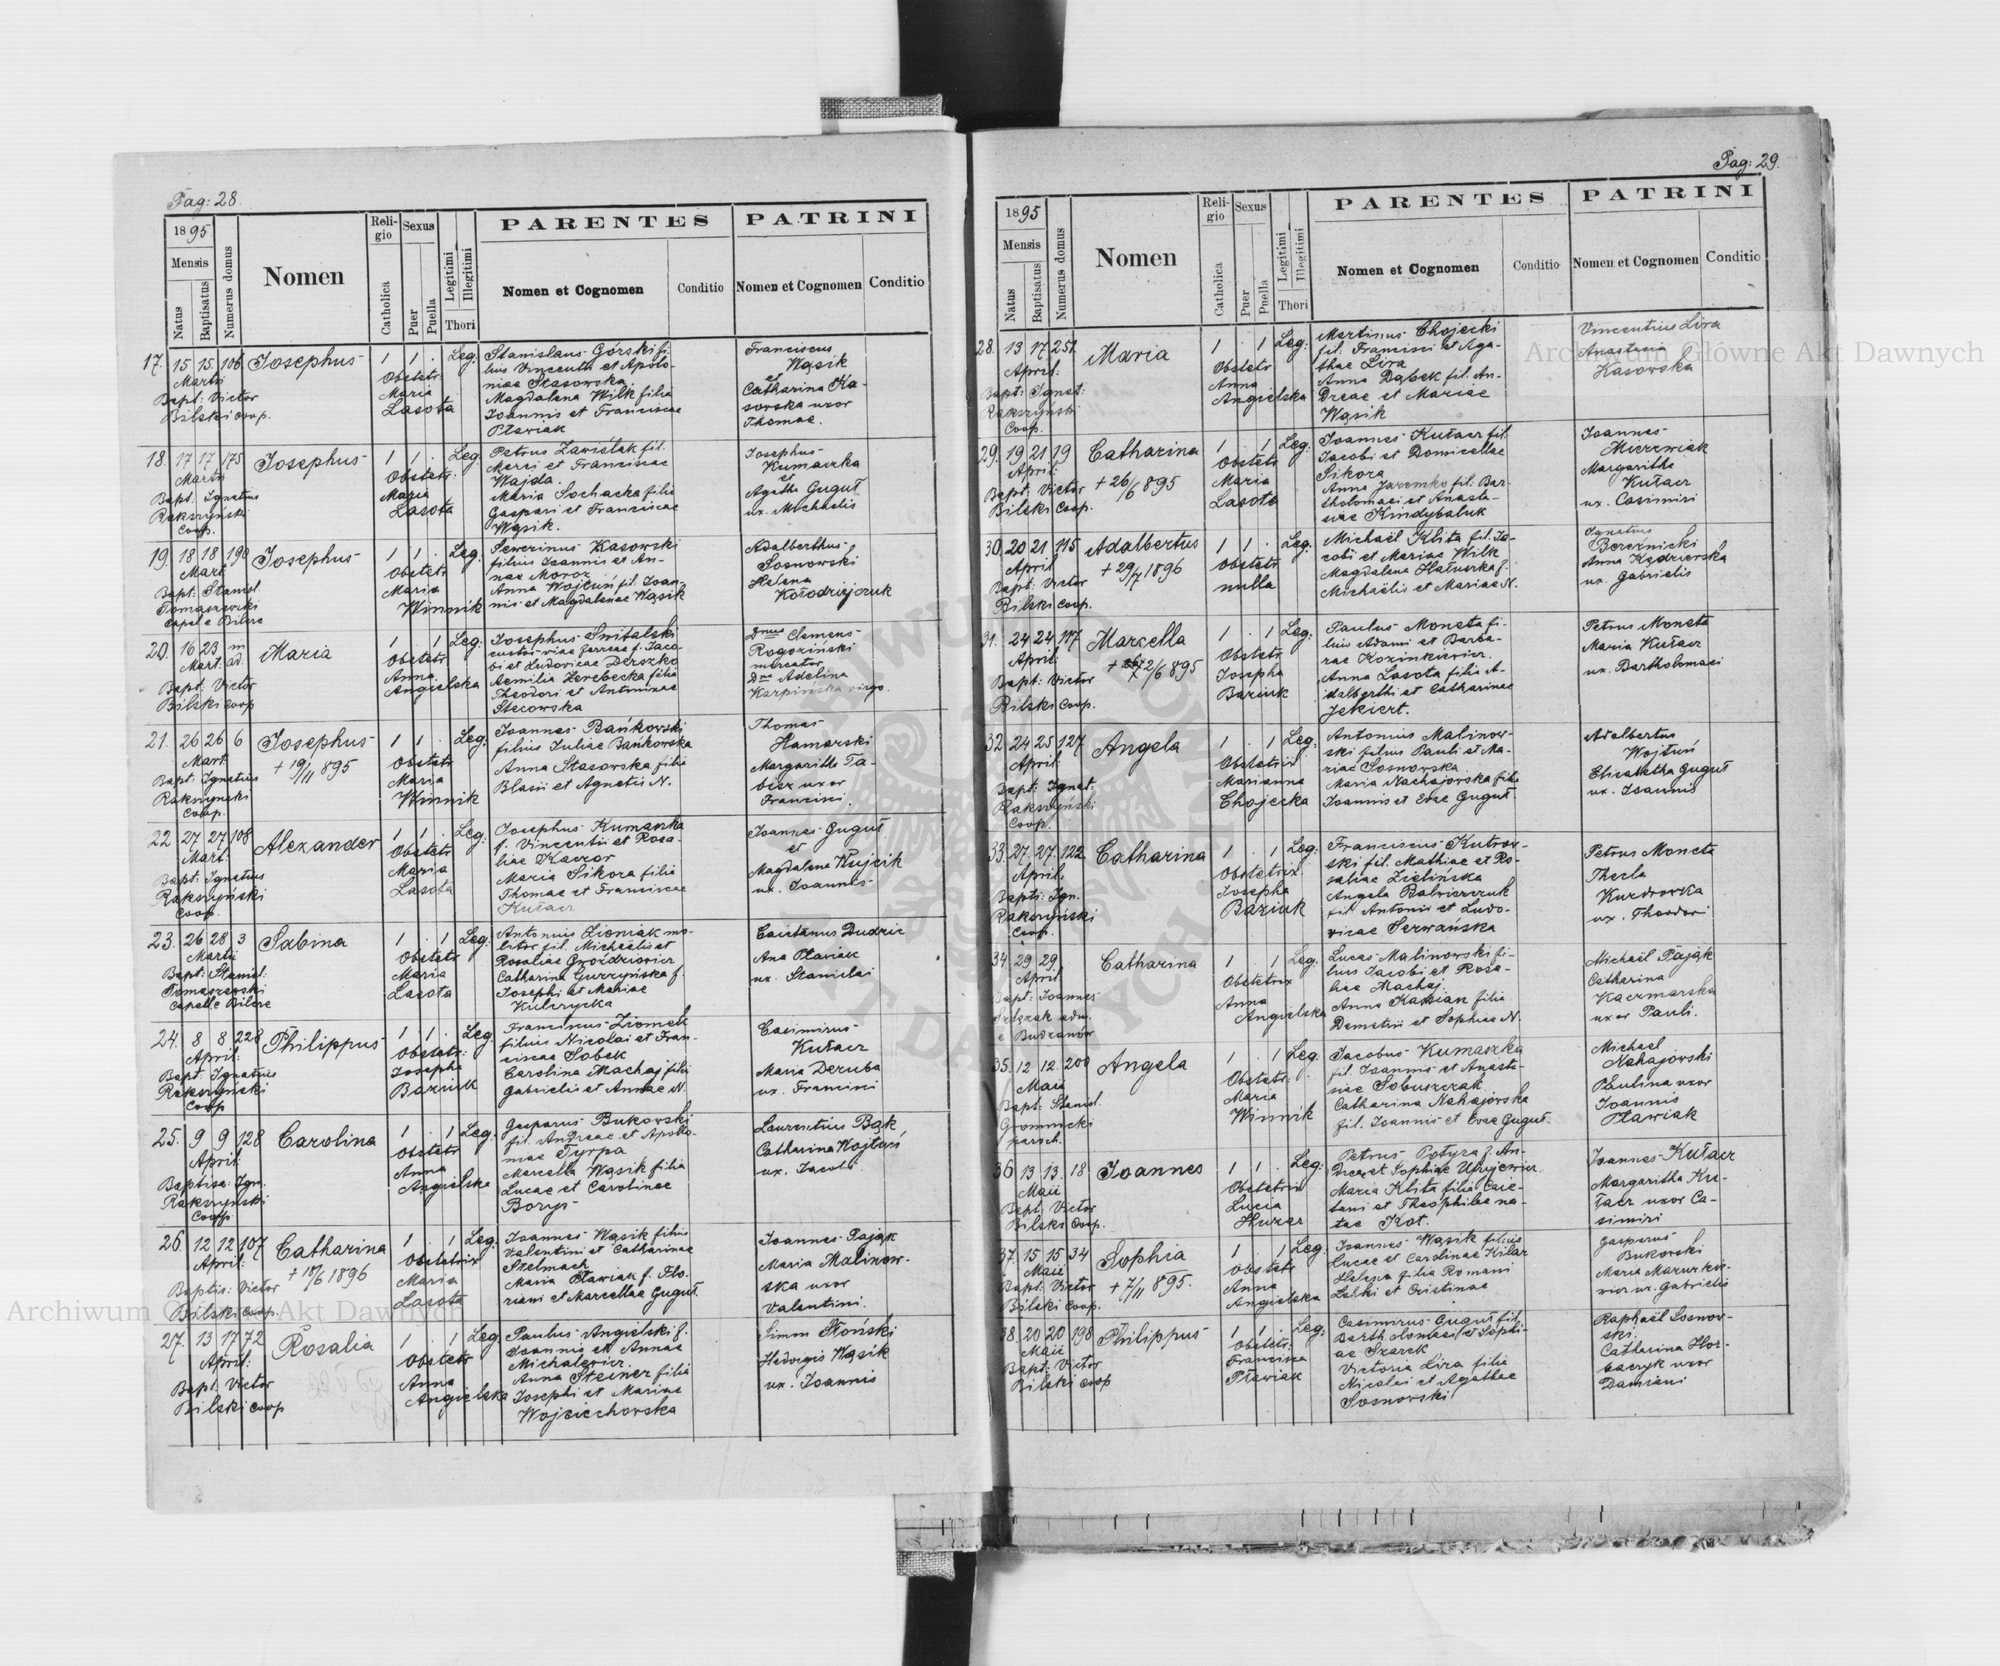 Pag: 28.
1895
Mensis
Natus
Baptisatus
Numerus domus
Nomen
Religio
Catholica
Sexus
Puer
Puella
Legitimi
Illegitimi
Thori
PARENTES
Nomen et Cognomen
Conditio
PATRINI
Nomen et Cognomen
Conditio
17. 15 15. 106 Josephus 1 1 . Leg.
Martii
Bapt: Victor
Bilski Coop.
Obstetr:
Maria
Lasota
Stanislaus Górski fi-
lius Vincentii et Apolo-
niae Stasowska
Magdalena Wilk filia
Joannis et Franciscae
Pławiak
Franciscus
Wąsik
et
Catharina Ka-
sowska uxor
Thomae.
18. 17 17 175 Josephus 1 1 . Leg.
Martii
Bapt: Ignatius
Rakszyński
Coop.
Obstetr:
Maria
Lasota
Petrus Zawiślak fil.
Marci et Franciscae
Wajda.
Maria Sochacka filia
Gaspari et Franciscae
Wąsik.
Josephus
Kumaszka
et
Agatha Guguł
ux. Michaelis
19. 18 18 190 Josephus 1 1 . Leg.
Mart:
Bapt: Stanisl.
Tomaszewski
Obstetr
Maria
Winnik
Sewerinus Kasowski
filius Joannis et An-
nae Moroz
Anna Wojtuń fil. Joan-
nis et Magdalenae Wąsik
Adalberthus
Sosnowski
Helena
Kołodziejczuk
20. 16 23 Maria 1 . 1 Leg:
Mart.
Bapt: Victor
Bilski Coop
Obstetr
Anna
Angielska
Josephus Smitalski
custos viae ferreae f. Jaco-
bi et Ludovicae Derszko
Aemilia Zerebecka filia
Theodori et Antoninae
Stecowska
Dnus Clemens
Rogoziński
mercator
Dna Adelina
Karpińska virgo.
21. 26 26 6 Josephus 1 1 . Leg:
+ 19/11 895
Mart.
Bapt: Ignatius
Rakszyński
Coop.
Obstetr
Maria
Winnik
Joannes Bańkowski
filius Juliae Bańkowska
Anna Stasowska filia
Blasii et Agnetis N.
Thomas
Hamarski
Margaritha Ta-
uxor
Francisci.
22 27 27 108 Alexander 1 1 . Leg:
Mart:
Bapt: Ignatius
Rakszyński
Coop.
Obstetr
Maria
Lasota
Josephus Kumaszka
f. Vincentii et Rosa-
liae Kaczor
Maria Sikora filia
Thomae et Franciscae
Kułacz
Joannes Guguł
et
Magdalena Wujcik
ux. Joannis
23. 26 28 3 Sabina 1 . 1 Leg.
Martii
Bapt: Stanisl:
Tomaszewski
Obstetr
Maria
Lasota
Antonius Zioniak mo-
litor fil. Michaelis et
Rosaliae Gwoździowicz
Catharina f.
Josephi et Mariae
Kulczycka
Caietanus Dudzic
Ana Pławiak
ux. Stanislai
24. 8 8 228 Philippus 1 1 . Leg.
April:
Bapt: Ignatius
Rakszyński
Coop
Obstetr:
Josepha
Baziuk
Franciscus Ziomek
filius Nicolai et Fran-
ciscae Sobek
Carolina Machaj filia
Gabrielis et Annae N.
Casimirus
Kułacz
Maria Deruba
ux. Francisci
25. 9 9 128 Carolina 1 . 1 Leg.
April:
Baptisa: Ign.
Rakszyński
Coop
Obstetr
Anna
Angielska
Gasparus Bukowski
fil. Andreae et Apollo-
niae Tyrpa
Marcella Wąsik filia
Lucae et Carolinae
Borys
Laurentius Bąk
Catharina Wojtuń
ux. Jacobi
26. 12 12 107 Catharina 1 . 1 Leg.
+ 18/6 1896
April:
Baptis: Victor
Bilski Coop.
Obstetrix
Maria
Lasota
Joannes Wąsik filius
Valentini et Catharinae
Stelmach
Maria Pławiak f. Flo-
riani et Marcellae Guguł.
Joannes Pająk
Maria Malinow-
ska uxor
Valentini.
27. 13 17 72 Rosalia 1 . 1 Leg
April:
Bapt: Victor
Bilski Coop
Obstetr
Anna
Angielska
Paulus Angielski f.
Joannis et Annae
Michalewicz.
Anna Steiner filia
Josephi et Mariae
Wojciechowska
Simon Słoński
Hedvigis Wąsik
ux. Joannis
Pag: 29.
1895
Mensis
Natus
Baptisatus
Numerus domus
Nomen
Religio
Catholica
Sexus
Puer
Puella
Legitimi
Illegitimi
Thori
PARENTES
Nomen et Cognomen
Conditio
PATRINI
Nomen et Cognomen
Conditio
28. 13 17 251. Maria 1 . 1 Leg:
April:
Bapt: Ignat:
Rakszyński
Coop.
Obstetr
Anna
Angielska
Martinus Chojecki
fil. Francisci et Aga-
thae Lira
Anna Dąbek fil. An-
dreae et Mariae
Wąsik
Vincentius Lira
Anastasia
Kasowska
29. 19 21 19 Catharina 1 . 1 Leg:
+ 26/6 895
April:
Bapt: Victor
Bilski Coop.
Obstetr
Maria
Lasota
Joannes Kułacz fil.
Jacobi et Domicellae
Sikora
Anna Jaremko fil. Bar-
tholomaei et Anasta-
siae Kindybaluk
Joannes
Mierzwiak
Margaritha
Kułacz
ux. Casimiri
30. 20 21 115 Adalbertus 1 1 . Leg:
+ 29/7 1896
April
Bapt: Victor
Bilski Coop.
Obstetr
nulla
Michaël Klita fil. Ja-
cobi et Mariae Wilk
Magdalena Hałuszka f.
Michaëlis et Mariae N.
Ignatius
Bereźnicki
Anna Kędzierska
ux. Gabrielis
31. 24 24 117 Marcella 1 . 1 Leg:
2/6 895
April:
Bapt: Victor
Bilski Coop.
Obstetr
Josepha
Baziuk
Paulus Moneta fi-
lius Adami et Barba-
rae Kozinkiewicz.
Anna Lasota filia A-
dalberthi et Catharinae
Jekiert.
Petrus Moneta
Maria Kułacz
ux. Bartholomaei
32. 24 25 127 Angela 1 . 1 Leg:
April:
Bapt: Ignat.
Rakszyński
Coop.
Obstetrix
Marianna
Chojecka
Antonius Malinow-
ski filius Pauli et Ma-
riae Sosnowska.
Maria Nachajowska filia
Joannis et Evae Guguł
Adalbertus
Wojtuń
Elisabetha Guguł
ux. Joannis
33. 27. 27. 122 Catharina 1 . 1 Leg:
April:
Baptis: Ign.
Rakszyński
Coop.
Obstetrix
Josepha
Baziuk
Franciscus Kutrow-
ski fil. Mathiae et Ro-
saliae Zielińska
Angela Balwierczuk
fil. Antonii et Ludo-
vicae Serwańska
Petrus Moneta
Thecla
ux. Theodori
34. 29 29 Catharina 1 . 1 Leg.
April
Bapt: Joannes
adm.
e Budzanów
Obstetrix
Anna
Angielska
Lucas Malinowski fi-
lius Jacobi et Rosa-
liae Machaj.
Anna Kassian filia
Demetrii et Sophiae N.
Michaël Pająk
Catharina
Kaczmarska
uxor Pauli.
35. 12 12. 200 Angela 1 . 1 Leg:
Maii
Bapt: Stanisl.
Gromnicki
paroch.
Obstetr:
Maria
Winnik
Jacobus Kumaszka
fil. Joannis et Anasta-
siae Sobuszczak
Catharina Nahajowska
fil. Joannis et Evae Guguł.
Michaël
Nahajowski
Paulina uxor
Joannis
Pławiak
36. 13 13. 18 Joannes 1 1 . Leg:
Maii
Bapt: Victor
Bilski Coop.
Obstetrix
Lucia
Huzar
Petrus Potyra f. An-
dreae et Sophiae Ujejewicz.
Maria Klita filia Caie-
tani et Theophilae na-
tae Kot.
Joannes Kułacz
Margaritha Ku-
łacz uxor Ca-
simiri
37. 15 15. 34 Sophia 1 . 1 Leg:
+ 7/11 895.
Maii
Bapt: Victor
Bilski Coop.
Obstetr
Anna
Angielska
Joannes Wąsik filius
Lucae et Carolinae Kilar
Helena filia Romani
et Cristinae
Gasparus
Bukowski
Maria Mazurkie-
wicz ux. Gabrielis
38. 20 20 198 Philippus 1 1 . Leg:
Maii
Bapt: Victor
Bilski Coop
Obstetr:
Francisca
Pławiak
Casimirus Guguł fil.
Bartholomaei et Sophi-
ae Szarek
Victoria Lira filia
Nicolai et Agathae
Sosnowski
Raphaël Sosnow-
ski.
Catharina Hor-
baczyk uxor
Damiani
Archiwum Główne Akt Dawnych
Archiwum Główne Akt Dawnych